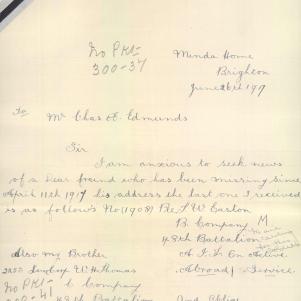 No PKt-
300-37
Minda Home
Brighton
June 26th 1917
To Mr Chas A. Edmunds
Sir
I am anxious to seek news
of a dear friend who has been missing since
April 11th 1917 his address the last one I received
is as follow's No (1908) Pte J W Easton
B. Company M
48th Battalion
Also my Brother A. I. F. On Active
W H Thomas Abroad Service
No PKt- C Company
48th Battalion